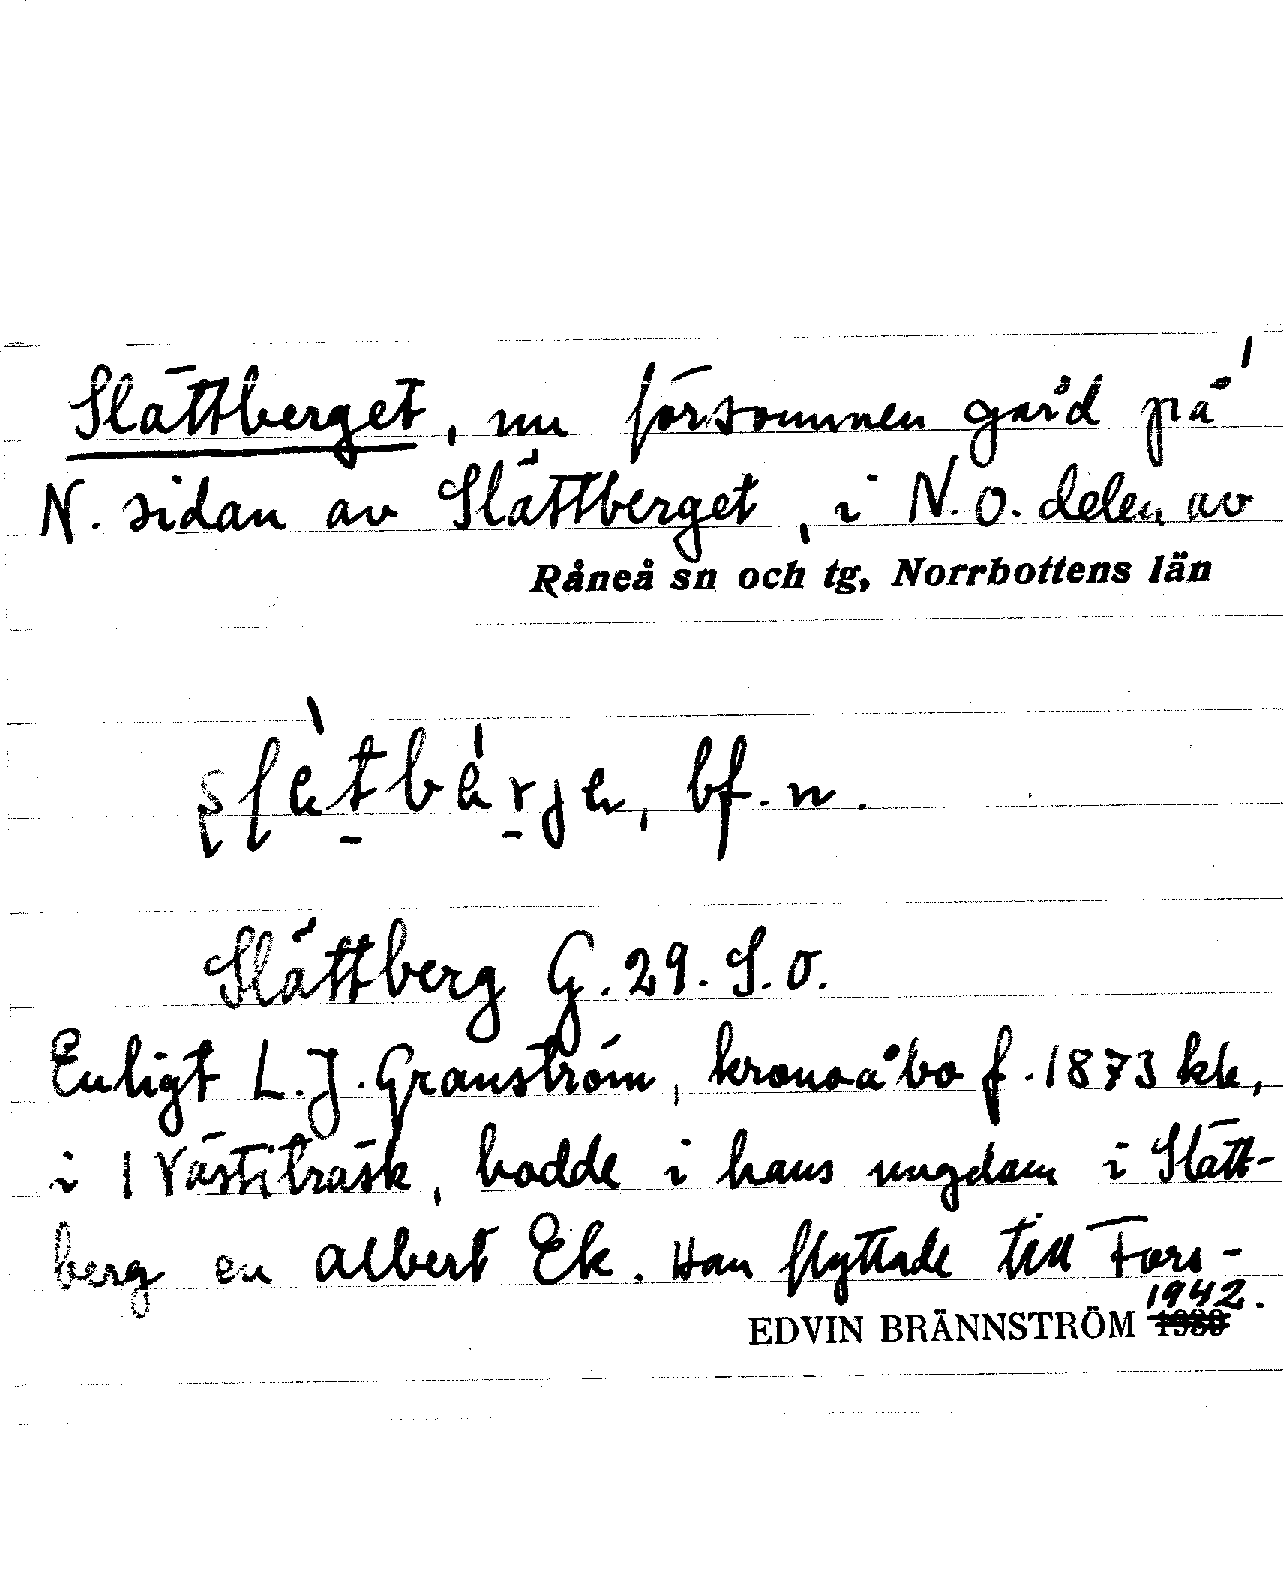 Slättberget, nu försvunnen gård på
N. sidan av Slättberget, i N.O. delen av
Råneå sn och tg, Norrbottens län
bf. n.
Slättberg G. 29. S.O.
Enligt L. J. Granström, kronoåbo f. 1873
i Västiträsk, bodde i hans ungdom i Slätt-
berg en Albert Ek. Han flyttade till Fors-
EDVIN BRÄNNSTRÖM 1942.